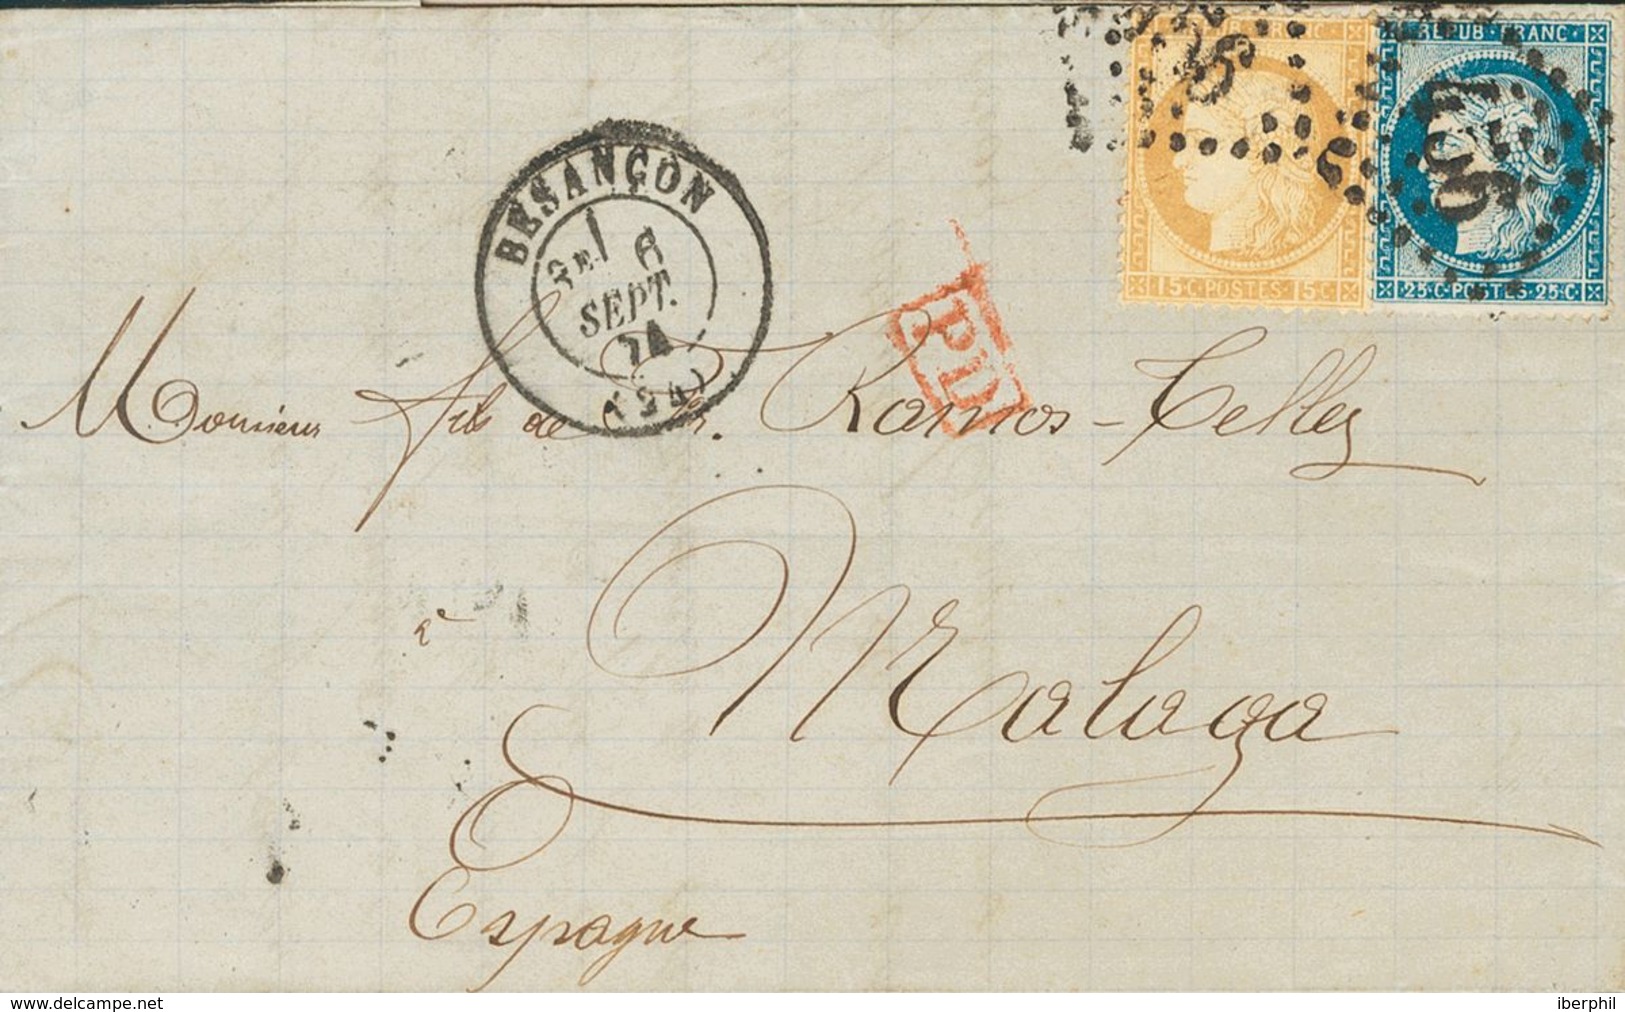 REPUB · FRANC
15·C·POSTES·15·C
25·C·POSTES·25·C
BESANÇON
2E/ 6
SEPT.
74
(24)
PD
Messieurs fils de Ramos-Tellez
à
Malaga
Espagne
www.delcampe.net
iberphil